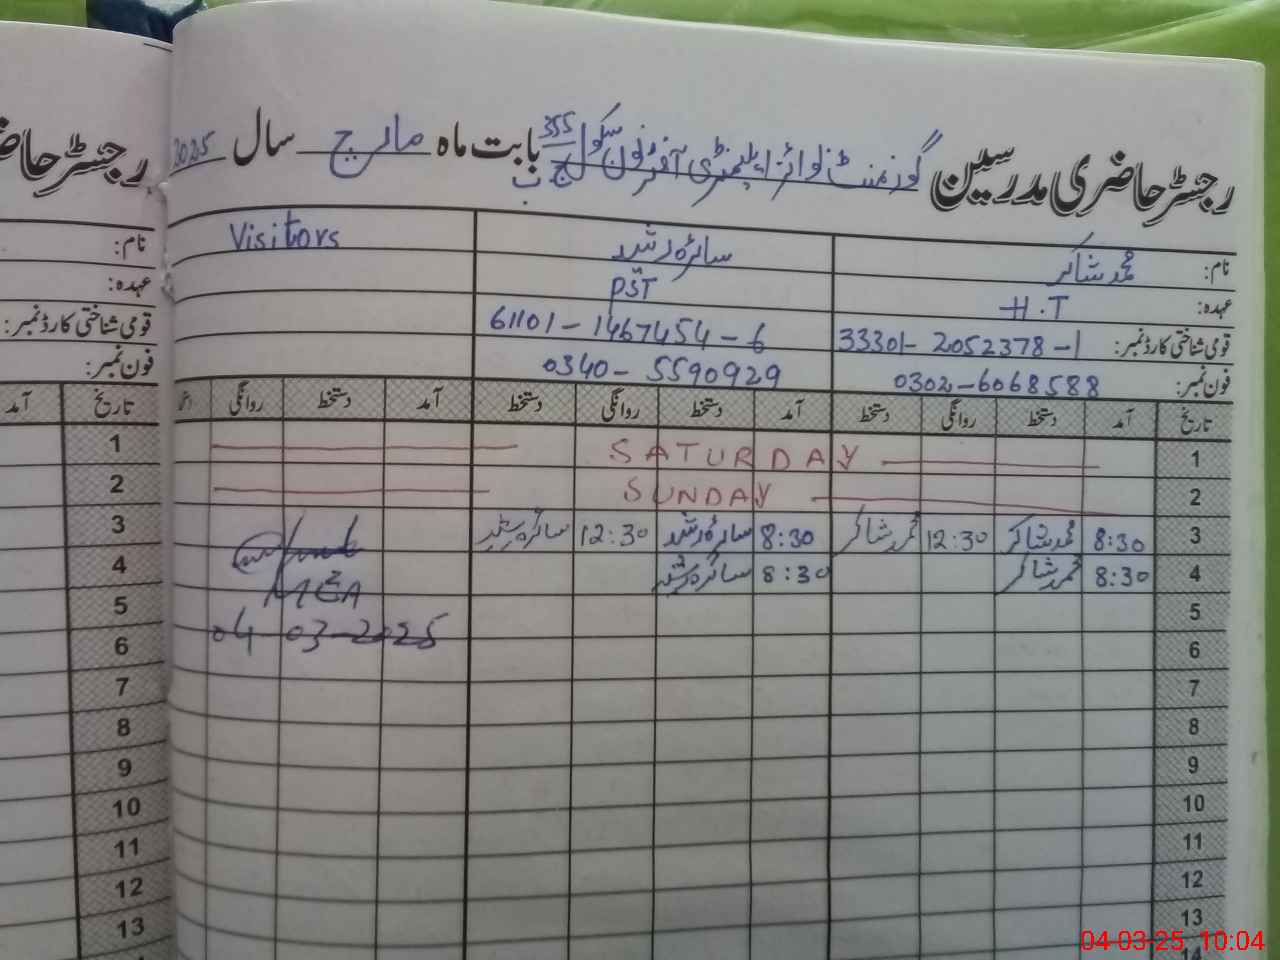 رجسٹر حاضری مدرسین گورنمنٹ بوائز ایلیمنٹری آفٹر نون سکول 355 ج ب بابت ماہ مارچ سال 2025
رجسٹر
نام: محمد شاکر سائرہ رشد Visitors
عہدہ: H.T PST
قومی شناختی کارڈ نمبر: 33301-2052378-1 61101-1467454-6
فون نمبر: 0302-6068588 0340-5590929
تاریخ آمد دستخط روانگی دستخط آمد دستخط روانگی دستخط آمد دستخط روانگی
1 SATURDAY
2 SUNDAY
3 8:30 محمد شاکر 12:30 محمد شاکر 8:30 سائرہ رشد 12:30 سائرہ رشد
4 8:30 محمد شاکر 8:30 سائرہ رشد
MEA
04-03-2025
5
6
7
8
9
10
11
12
13
14
نام:
عہدہ:
قومی شناختی کارڈ نمبر:
فون نمبر:
تاریخ آمد
1
2
3
4
5
6
7
8
9
10
11
12
13
04-03-25 10:04